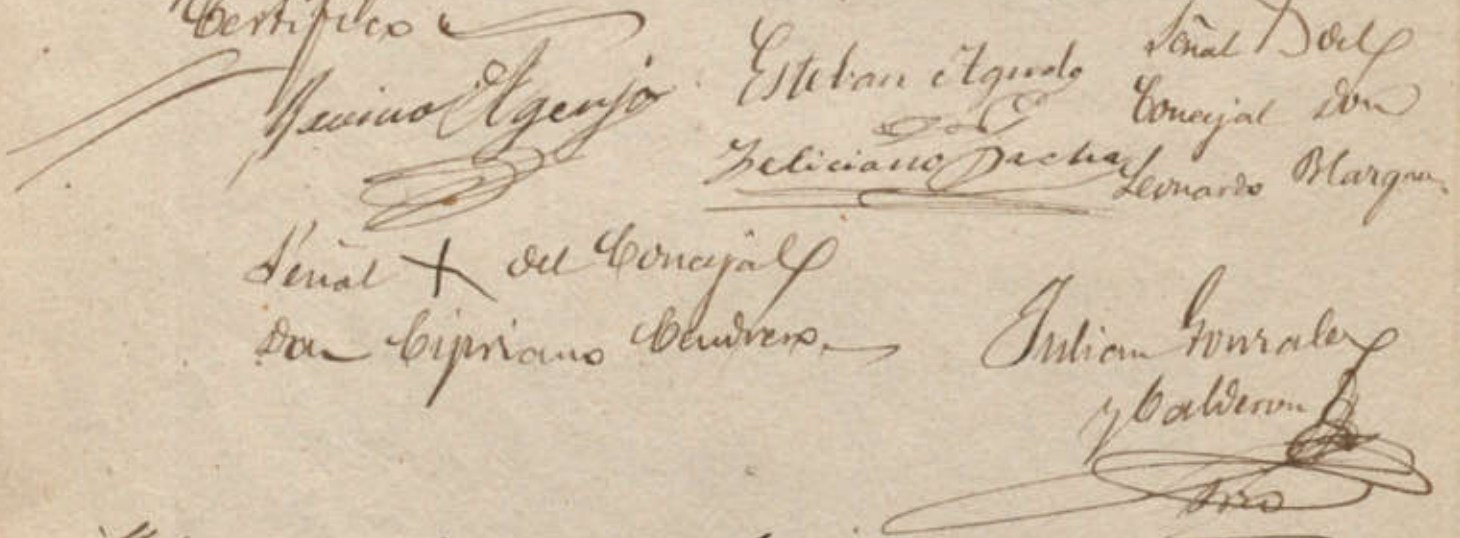 Certifico
Agenjo
Esteban Agudo
Feliciano Pacha
Señal D del
Concejal Don
Leonardo
Señal + del Concejal
Don Cipriano Cendrero
Julian Gonzalez
y Calderon
Srio